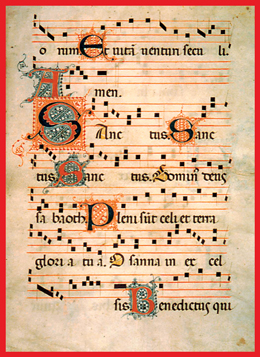 o num Et vitā venturi secu li.
A men.
Sanc tus. Sanc
tus. Sanc tus. Domin⁹ deus
sa baoth. Pleni sūt celi et terra
glori a tu a. O sanna in ex cel
sis Benedictus qui